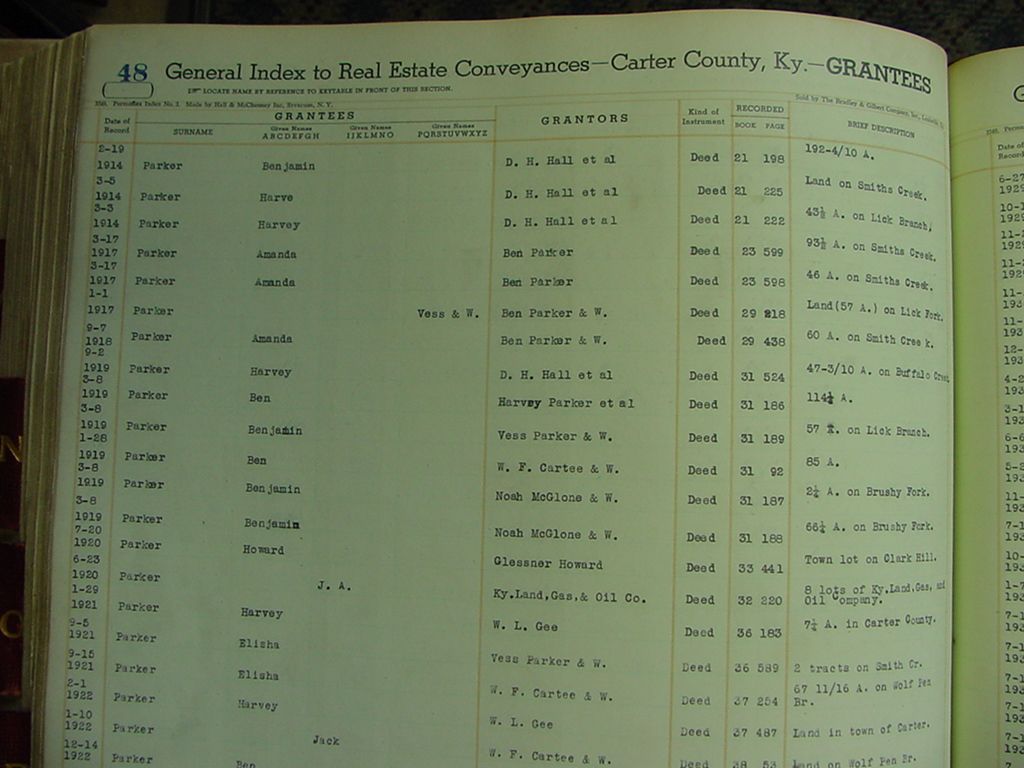 48 General Index to Real Estate Conveyances—Carter County, Ky.—GRANTEES
LOCATE NAME BY REFERENCE TO KEYTABLE IN FRONT OF THIS SECTION.
Permaflex Index No. 3. Made by Hall & McChesney Inc, Syracuse, N. Y. Sold by The Bradley & Gilbert Company, Inc.
Date of Record GRANTEES GRANTORS Kind of Instrument RECORDED BRIEF DESCRIPTION
SURNAME Given Names ABCDEFGH Given Names IJKLMNO Given Names PQRSTUVWXYZ BOOK PAGE
2-19
1914 Parker Benjamin D. H. Hall et al Deed 21 198 192-4/10 A.
3-5
1914 Parker Harve D. H. Hall et al Deed 21 225 Land on Smiths Creek.
3-3
1914 Parker Harvey D. H. Hall et al Deed 21 222 43½ A. on Lick Branch,
3-17
1917 Parker Amanda Ben Parker Deed 23 599 93½ A. on Smiths Creek.
3-17
1917 Parker Amanda Ben Parker Deed 23 598 46 A. on Smiths Creek.
1-1
1917 Parker Vess & W. Ben Parker & W. Deed 29 218 Land(57 A.) on Lick Fork.
9-7
1918 Parker Amanda Ben Parker & W. Deed 29 438 60 A. on Smith Cree k.
9-2
1919 Parker Harvey D. H. Hall et al Deed 31 524 47-3/10 A. on Buffalo Creek
3-8
1919 Parker Ben Harvey Parker et al Deed 31 186 114¼ A.
3-8
1919 Parker Benjamin Vess Parker & W. Deed 31 189 57 on Lick Branch.
1-28
1919 Parker Ben W. F. Cartee & W. Deed 31 92 85 A.
3-8
1919 Parker Benjamin Noah McGlone & W. Deed 31 187 2¼ A. on Brushy Fork.
3-8
1919 Parker Benjamin Noah McGlone & W. Deed 31 188 66¼ A. on Brushy Fork.
7-20
1920 Parker Howard Glessner Howard Deed 33 441 Town lot on Clark Hill.
6-23
1920 Parker J. A. Ky.Land,Gas,& Oil Co. Deed 32 220 8 lots of Ky.Land,Gas, and
Oil Company.
1-29
1921 Parker Harvey W. L. Gee Deed 36 183 7¼ A. in Carter County.
9-5
1921 Parker Elisha Vess Parker & W. Deed 36 589 2 tracts on Smith Cr.
9-15
1921 Parker Elisha W. F. Cartee & W. Deed 37 254 67 11/16 A. on Wolf Pen
Br.
2-1
1922 Parker Harvey W. L. Gee Deed 37 487 Land in town of Carter.
1-10
1922 Parker Jack W. F. Cartee & W. Deed 38 53 Land on Wolf Pen Br.
12-14
1922 Parker Ben